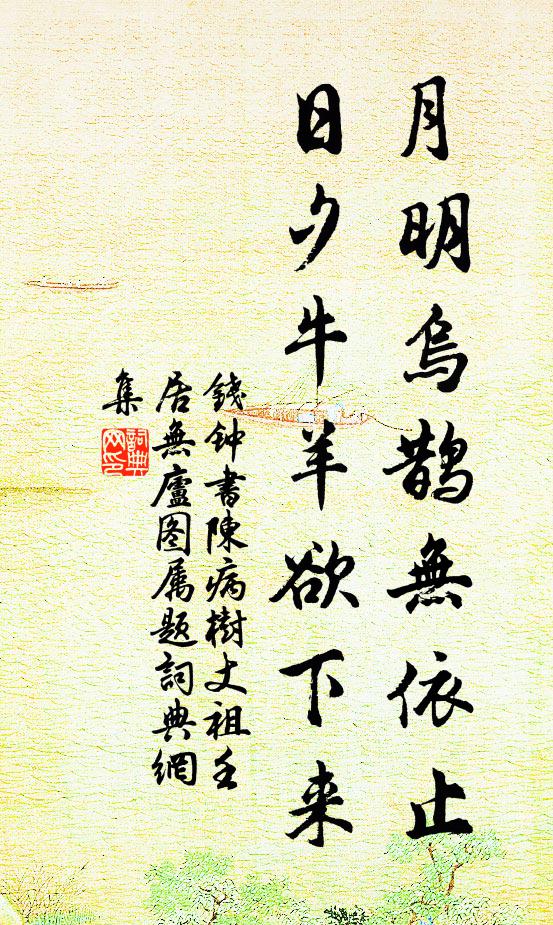 月明烏鵲無依止
日夕牛羊欲下来
錢钟書陳病樹丈祖壬
居無廬图属題詞典網
集
詞典網印